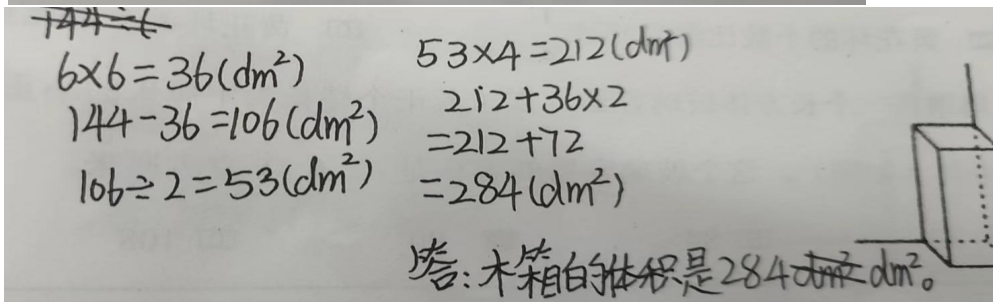 144÷6
6×6=36(dm²)
144-36=106(dm²)
106÷2=53(dm²)
53×4=212(dm²)
212+36×2
=212+72
=284(dm²)
答:木箱的体积是284dm² dm²。